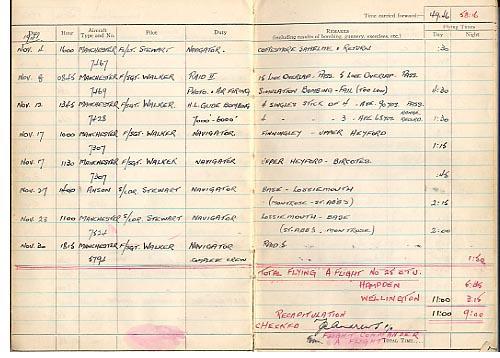 Time carried forward:— 49.16 58.16
19 Hour Aircraft Type and No. Pilot Duty REMARKS (including results of bombing, gunnery, exercises, etc.) Flying Times Day Night
NOV. 4 1600 MANCHESTER F/LT. STEWART NAVIGATOR. COTTESMORE SATELLITE & RETURN :30
7467
NOV. 8 MANCHESTER F/SGT. WALKER RAID II 15 LINE OVERLAP. PASS. 5 LINE OVERLAP. PASS
7469 PHOTO. & AIR FIRING SIMULATION BOMBING - FAIL (TOO LOW) 1:30
NOV. 12 1345 MANCHESTER F/SGT. WALKER H.L. GLIDE BOMBING 4 SINGLES STICK OF 4
7423 7000'-6000' 1:30
NOV. 17 1000 MANCHESTER F/SGT. WALKER NAVIGATOR. FINNINGLEY - UPPER HEYFORD
7307 1:15
NOV. 17 1130 MANCHESTER F/SGT. WALKER NAVIGATOR UPPER HEYFORD - BIRCOTES.
7307 :45
NOV. ANSON S/LDR. STEWART NAVIGATOR BASE - LOSSIEMOUTH
(MONTROSE - ST. ABBS) 2:15
NOV. 23 1100 MANCHESTER S/LDR. STEWART NAVIGATOR LOSSIEMOUTH - BASE
(ST. ABBS, MONTROSE) 2:00
NOV. 1815 MANCHESTER F/SGT. WALKER NAVIGATOR RAID
COMPLETE CREW
TOTAL FLYING A FLIGHT No 25 O.T.U.
HAMPDEN
WELLINGTON 11:00 3:15
RECAPITULATION 11:00 9:00
CHECKED
FLIGHT COMMANDER
A FLIGHT TOTAL TIME....